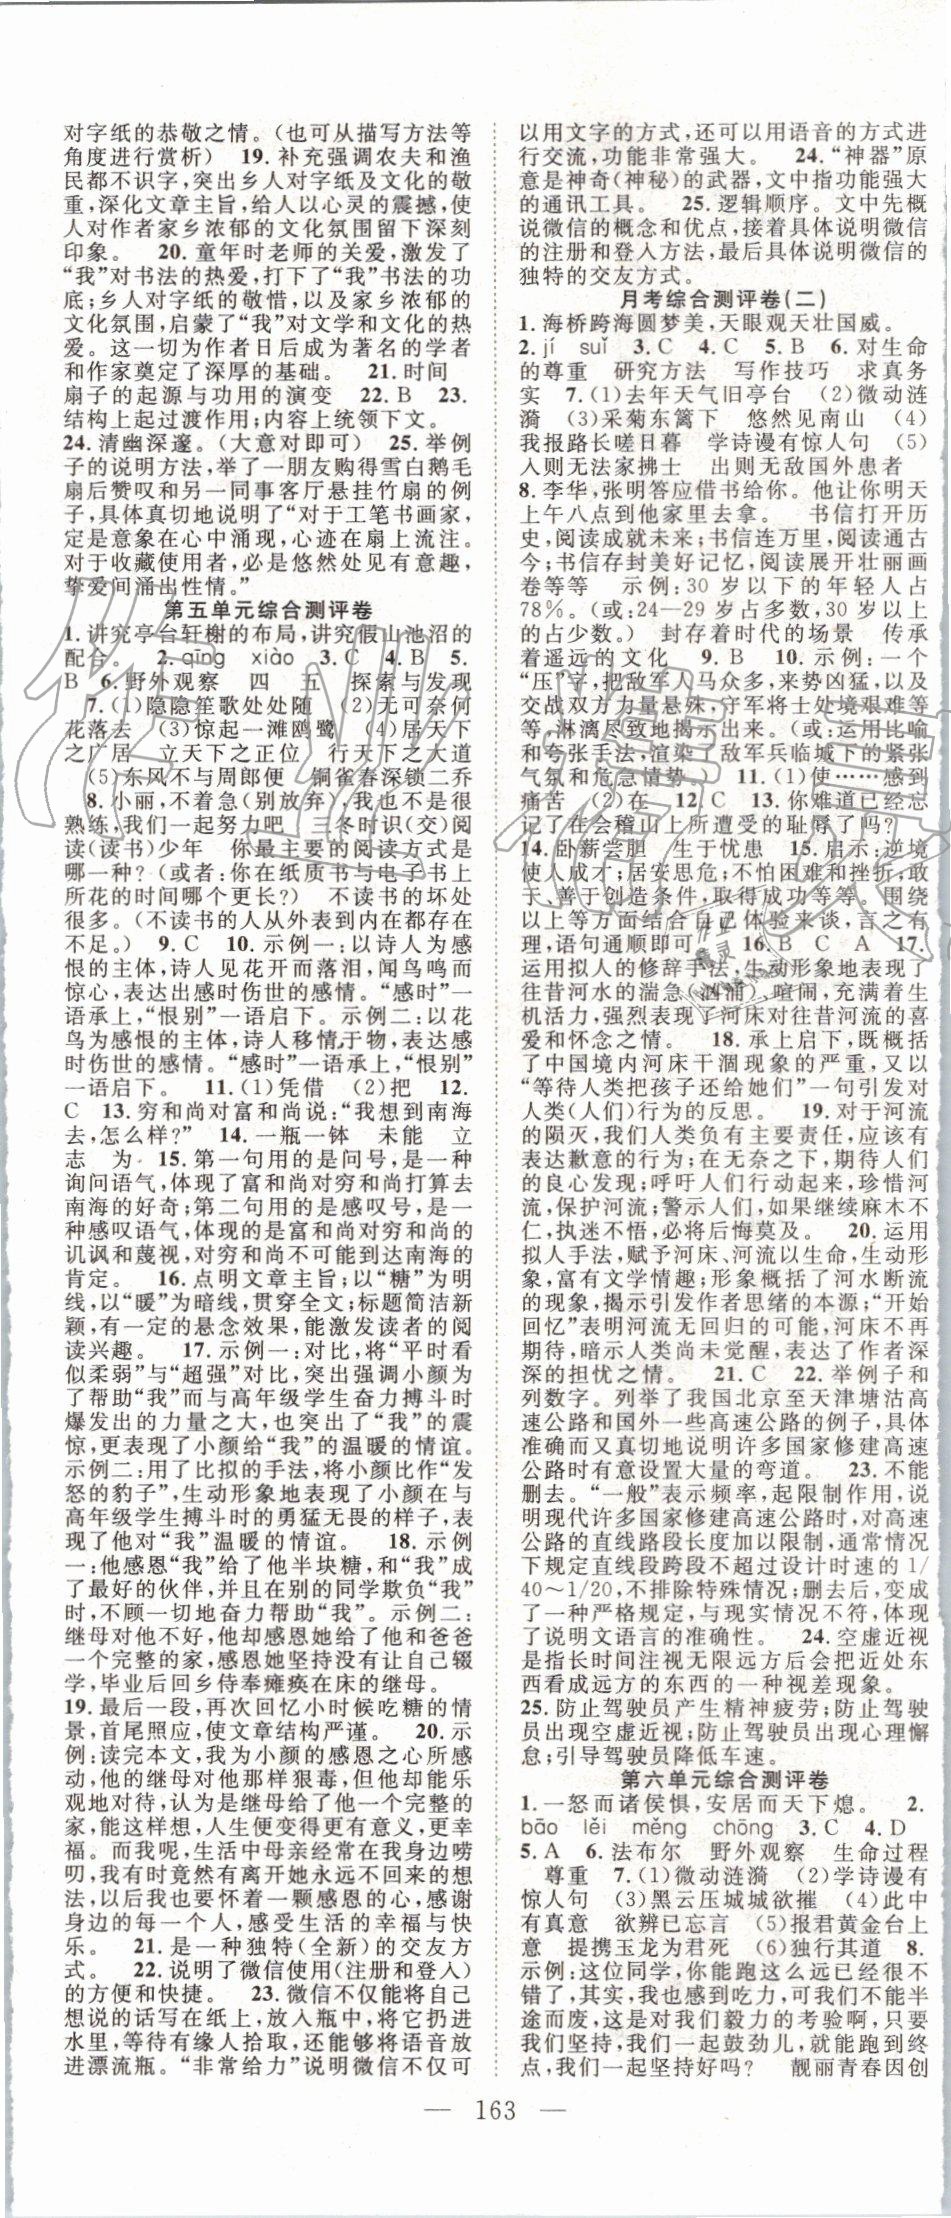 对字纸的恭敬之情。(也可从描写方法等
角度进行赏析) 19. 补充强调农夫和渔
民都不识字,突出乡人对字纸及文化的敬
重,深化文章主旨,给人以心灵的震撼,使
人对作者家乡浓郁的文化氛围留下深刻
印象。 20. 童年时老师的关爱,激发了
“我”对书法的热爱,打下了“我”书法的功
底;乡人对字纸的敬惜,以及家乡浓郁的
文化氛围,启蒙了“我”对文学和文化的热
爱。这一切为作者日后成为著名的学者
和作家奠定了深厚的基础。 21. 时间
扇子的起源与功用的演变 22. B 23.
结构上起过渡作用;内容上统领下文。
24. 清幽深邃。(大意对即可) 25. 举例
子的说明方法,举了一朋友购得雪白鹅毛
扇后赞叹和另一同事客厅悬挂竹扇的例
子,具体真切地说明了“对于工笔书画家,
定是意象在心中涌现,心迹在扇上流注。
对于收藏使用者,必是悠然处见有意趣,
挚爱间涌出性情。”
第五单元综合测评卷
1. 讲究亭台轩榭的布局,讲究假山池沼的
配合。 2. qīng xiào 3. C 4. B 5.
B 6. 野外观察 四 五 探索与发现
7. (1)隐隐笙歌处处随 (2)无可奈何
花落去 (3)惊起一滩鸥鹭 (4)居天下
之广居 立天下之正位 行天下之大道
(5)东风不与周郎便 铜雀春深锁二乔
8. 小丽,不着急(别放弃),我也不是很
熟练,我们一起努力吧 三冬时识(交)阅
读(读书)少年 你最主要的阅读方式是
哪一种?(或者:你在纸质书与电子书上
所花的时间哪个更长?) 不读书的坏处
很多。(不读书的人从外表到内在都存在
不足。) 9. C 10. 示例一:以诗人为感
恨的主体,诗人见花开而落泪,闻鸟鸣而
惊心,表达出感时伤世的感情。“感时”一
语承上,“恨别”一语启下。示例二:以花
鸟为感恨的主体,诗人移情于物,表达出感
时伤世的感情。“感时”一语承上,“恨别”
一语启下。 11. (1)凭借 (2)把 12.
C 13. 穷和尚对富和尚说:“我想到南海
去,怎么样?” 14. 一瓶一钵 未能 立
志 为 15. 第一句用的是问号,是一种
询问语气,体现的是富和尚对穷和尚打算去
南海的好奇;第二句用的是感叹号,是一
种感叹语气,体现的是富和尚对穷和尚的
讥讽和蔑视,对穷和尚不可能到达南海的
肯定。 16. 点明文章主旨;以“糖”为明
线,以“暖”为暗线,贯穿全文;标题简洁新
颖,有一定的悬念效果,能激发读者的阅
读兴趣。 17. 示例一:对比,将“平时看
似柔弱”与“超强”对比,突出强调小颜为
了帮助“我”而与高年级学生奋力搏斗时
爆发出的力量之大,也突出了“我”的震
惊,更表现了小颜给“我”的温暖的情谊。
示例二:用了比拟的手法,将小颜比作“发
怒的豹子”,生动形象地表现了小颜在与
高年级学生搏斗时的勇猛无畏的样子,表
现了他对“我”温暖的情谊。 18. 示例
一:他感恩“我”给了他半块糖,和“我”成
了最好的伙伴,并且在别的同学欺负“我”
时,不顾一切地奋力帮助“我”。示例二:
继母对他不好,他却感恩她给了他和爸爸
一个完整的家,感恩她坚持没有让自己辍
学,毕业后回乡侍奉瘫痪在床的继母。
19. 最后一段,再次回忆小时候吃糖的情
景,首尾照应,使文章结构严谨。 20. 示
例:读完本文,我为小颜的感恩之心所感
动,他的继母对他那样狠毒,而他却能乐
观地对待,这是为什么呢?因为每个人心
中都有感恩,人生便变得更有意义,更幸
福。而我呢,生活中母亲经常在我身边唠
叨,我真的时常有离开她永远不回来的想
法,以后我也要怀着一颗感恩的心,感谢
身边的每一个人,感受生活的幸福与快
乐。 21. 是一种独特(全新)的交友方
式。 22. 说明了微信使用(注册和登入)
的方便和快捷。 23. 微信不仅能将自己
想说的话写在纸上,放入瓶中,将它扔进
水里,等待有缘人拾取,还能够将语音放
进漂流瓶。“非常给力”说明微信不仅可
以用文字的方式,还可以用语音的方式进
行交流,功能非常强大。 24. “神器”原
意是神奇(神秘)的武器,文中指功能强大
的通讯工具。 25. 逻辑顺序。文中先概
说微信的概念和优点,接着具体说明微信
的注册和登入方法,最后具体说明微信的
独特的交友方式。
月考综合测评卷(二)
1. 海桥跨海圆梦美,天眼观天壮国威。
2. jí suǐ 3. C 4. C 5. B 6. 对生命
的尊重 研究方法 写作技巧 求真务
实 7. (1)去年天气旧亭台 (2)微动涟
漪 (3)采菊东篱下 悠然见南山 (4)
我报路长嗟日暮 学诗谩有惊人句 (5)
入则无法家拂士 出则无敌国外患者
8. 李华,张明答应借书给你。他让你明天
上午八点到他家里去拿。 书信打开历
史,阅读成就未来;书信连万里,阅读通古
今;书信存封美好记忆,阅读展开壮丽画
卷等等 示例:30 岁以下的年轻人占
78%。(或:24—29 岁占多数,30 岁以上
的占少数。) 封存着时代的场景 传承
着遥远的文化 9. B 10. 示例:一个
“压”字,把敌军人马众多,来势凶猛,以及
交战双方力量悬殊,守军将士处境艰难等
等,淋漓尽致地揭示出来。(或:运用比喻
和夸张手法,渲染了敌军兵临城下的紧张
气氛和危急情势。) 11. (1)使……感到
痛苦 (2)在 12. C 13. 你难道已经忘
记了在会稽山上所遭受的耻辱了吗?
14. 卧薪尝胆 生于忧患 15. 启示:逆境
使人成才;居安思危;不怕困难和挫折;敢
于善于创造条件,取得成功等等。围绕
以上等方面结合自己体验来谈,言之有
理,语句通顺即可。 16. B C A 17.
运用拟人的修辞手法,生动形象地表现了
往昔河水的湍急(汹涌)、喧闹,充满着生
机活力,强烈表达了河床对往昔河流的喜
爱和怀念之情。 18. 承上启下,既概括
了中国境内河床干涸现象的严重,又以
“等待人类把孩子还给她们”一句引发对
人类(人们)行为的反思。 19. 对于河流
的陨灭,我们人类负有主要责任,应该有
表达歉意的行为;在无奈之下,期待人们
的良心发现;呼吁人们行动起来,珍惜河
流,保护河流;警示人们,如果继续麻木不
仁,执迷不悟,必将后悔莫及。 20. 运用
拟人手法,赋予河床、河流以生命,生动形
象,富有文学情趣;形象概括了河水断流
的现象,揭示引发作者思绪的本源;“开始
回忆”表明河流无回归的可能,河床不再
期待,暗示人类尚未觉醒,表达了作者深
深的担忧之情。 21. C 22. 举例子和
列数字。列举了我国北京至天津塘沽高
速公路和国外一些高速公路的例子,具体
准确而又真切地说明许多国家修建高速
公路时有意设置大量的弯道。 23. 不能
删去。“一般”表示频率,起限制作用,说
明现代许多国家修建高速公路时,对高速
公路的直线路段长度加以限制,通常情况
下规定直线段跨段不超过设计时速的 1/
40~1/20,不排除特殊情况;删去后,变成
了一种严格规定,与现实情况不符,体现
了说明文语言的准确性。 24. 空虚近视
是指长时间注视无限远方后会把近处东
西看成远方的东西的一种视差现象。
25. 防止驾驶员产生精神疲劳;防止驾驶
员出现空虚近视;防止驾驶员出现心理懈
怠;引导驾驶员降低车速。
第六单元综合测评卷
1. 一怒而诸侯惧,安居而天下熄。 2.
bāo lěi měng chōng 3. C 4. D
5. A 6. 法布尔 野外观察 生命过程
尊重 7. (1)微动涟漪 (2)学诗谩有
惊人句 (3)黑云压城城欲摧 (4)此中
有真意 欲辨已忘言 (5)报君黄金台上
意 提携玉龙为君死 (6)独行其道 8.
示例:这位同学,你能跑这么远已经很不
错了,其实我也挺吃力,可我们不能半
途而废,这是对我们毅力的考验啊,只要
我们坚持,我们一起鼓劲儿,就能跑到终
点,我们一起坚持好吗? 靓丽青春因创
— 163 —